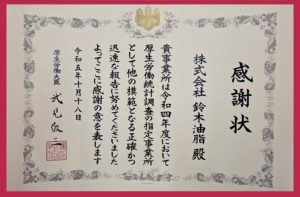 感謝状
株式会社 鈴木油脂 殿
貴事業所は令和四年度において
厚生労働統計調査の指定事業所
として他の模範となる正確かつ
迅速な報告に努めてくださいました
よってここに感謝の意を表します
令和五年十月十八日
厚生労働大臣 武見敬三